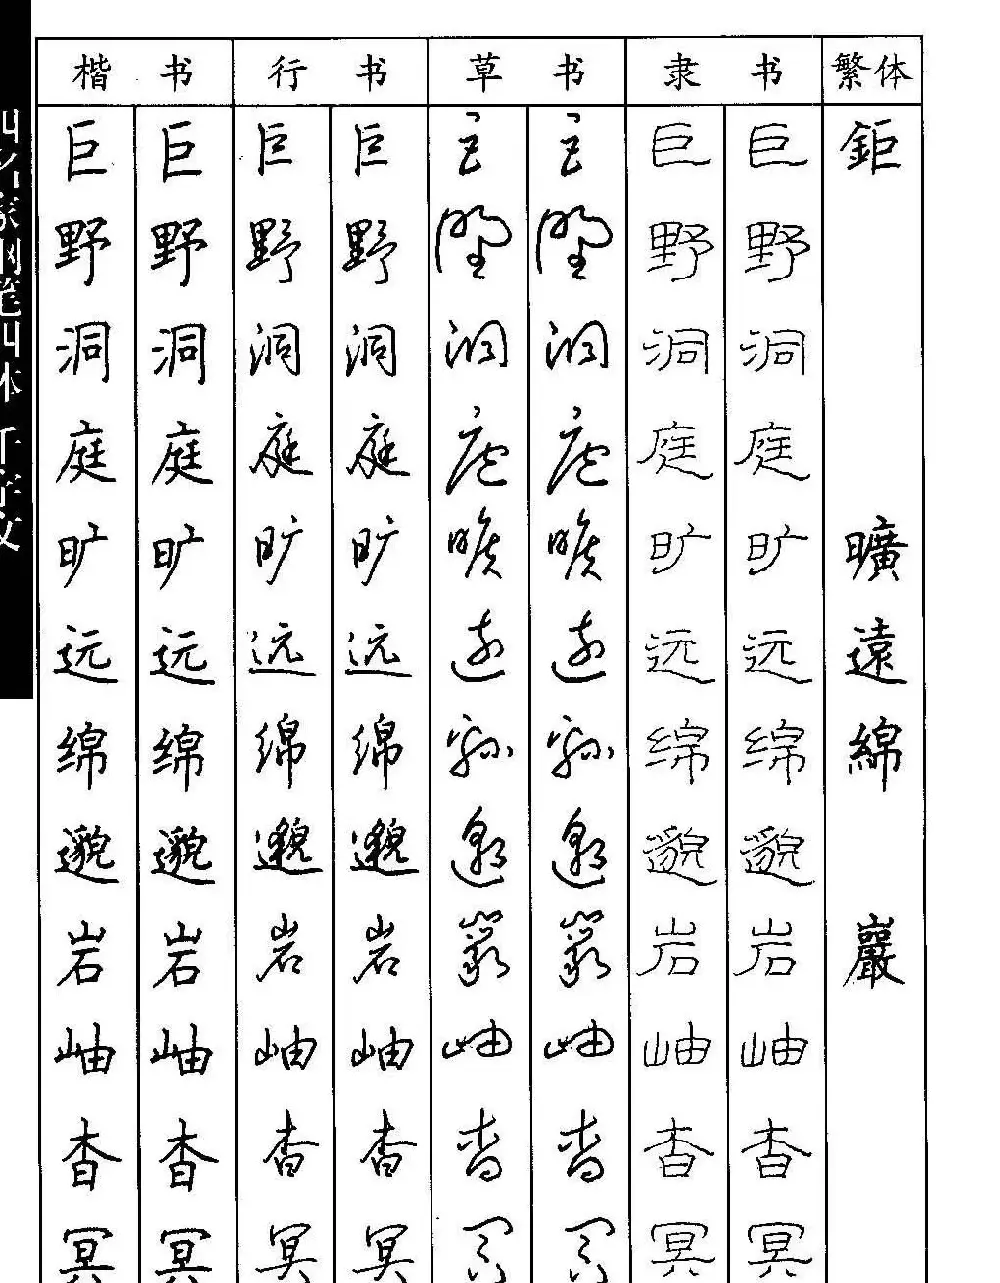 四名家钢笔四体千字文
楷书 行书 草书 隶书 繁体
巨 巨 巨 巨 巨 巨 巨 巨 鉅
野 野 野 野 野 野 野 野
洞 洞 洞 洞 洞 洞 洞 洞
庭 庭 庭 庭 庭 庭 庭 庭
旷 旷 旷 旷 旷 旷 旷 旷 曠
远 远 远 远 远 远 远 远 遠
绵 绵 绵 绵 绵 绵 绵 绵 綿
邈 邈 邈 邈 邈 邈 邈 邈
岩 岩 岩 岩 岩 岩 岩 岩 巖
岫 岫 岫 岫 岫 岫 岫 岫
杳 杳 杳 杳 杳 杳 杳 杳
冥 冥 冥 冥 冥 冥 冥 冥